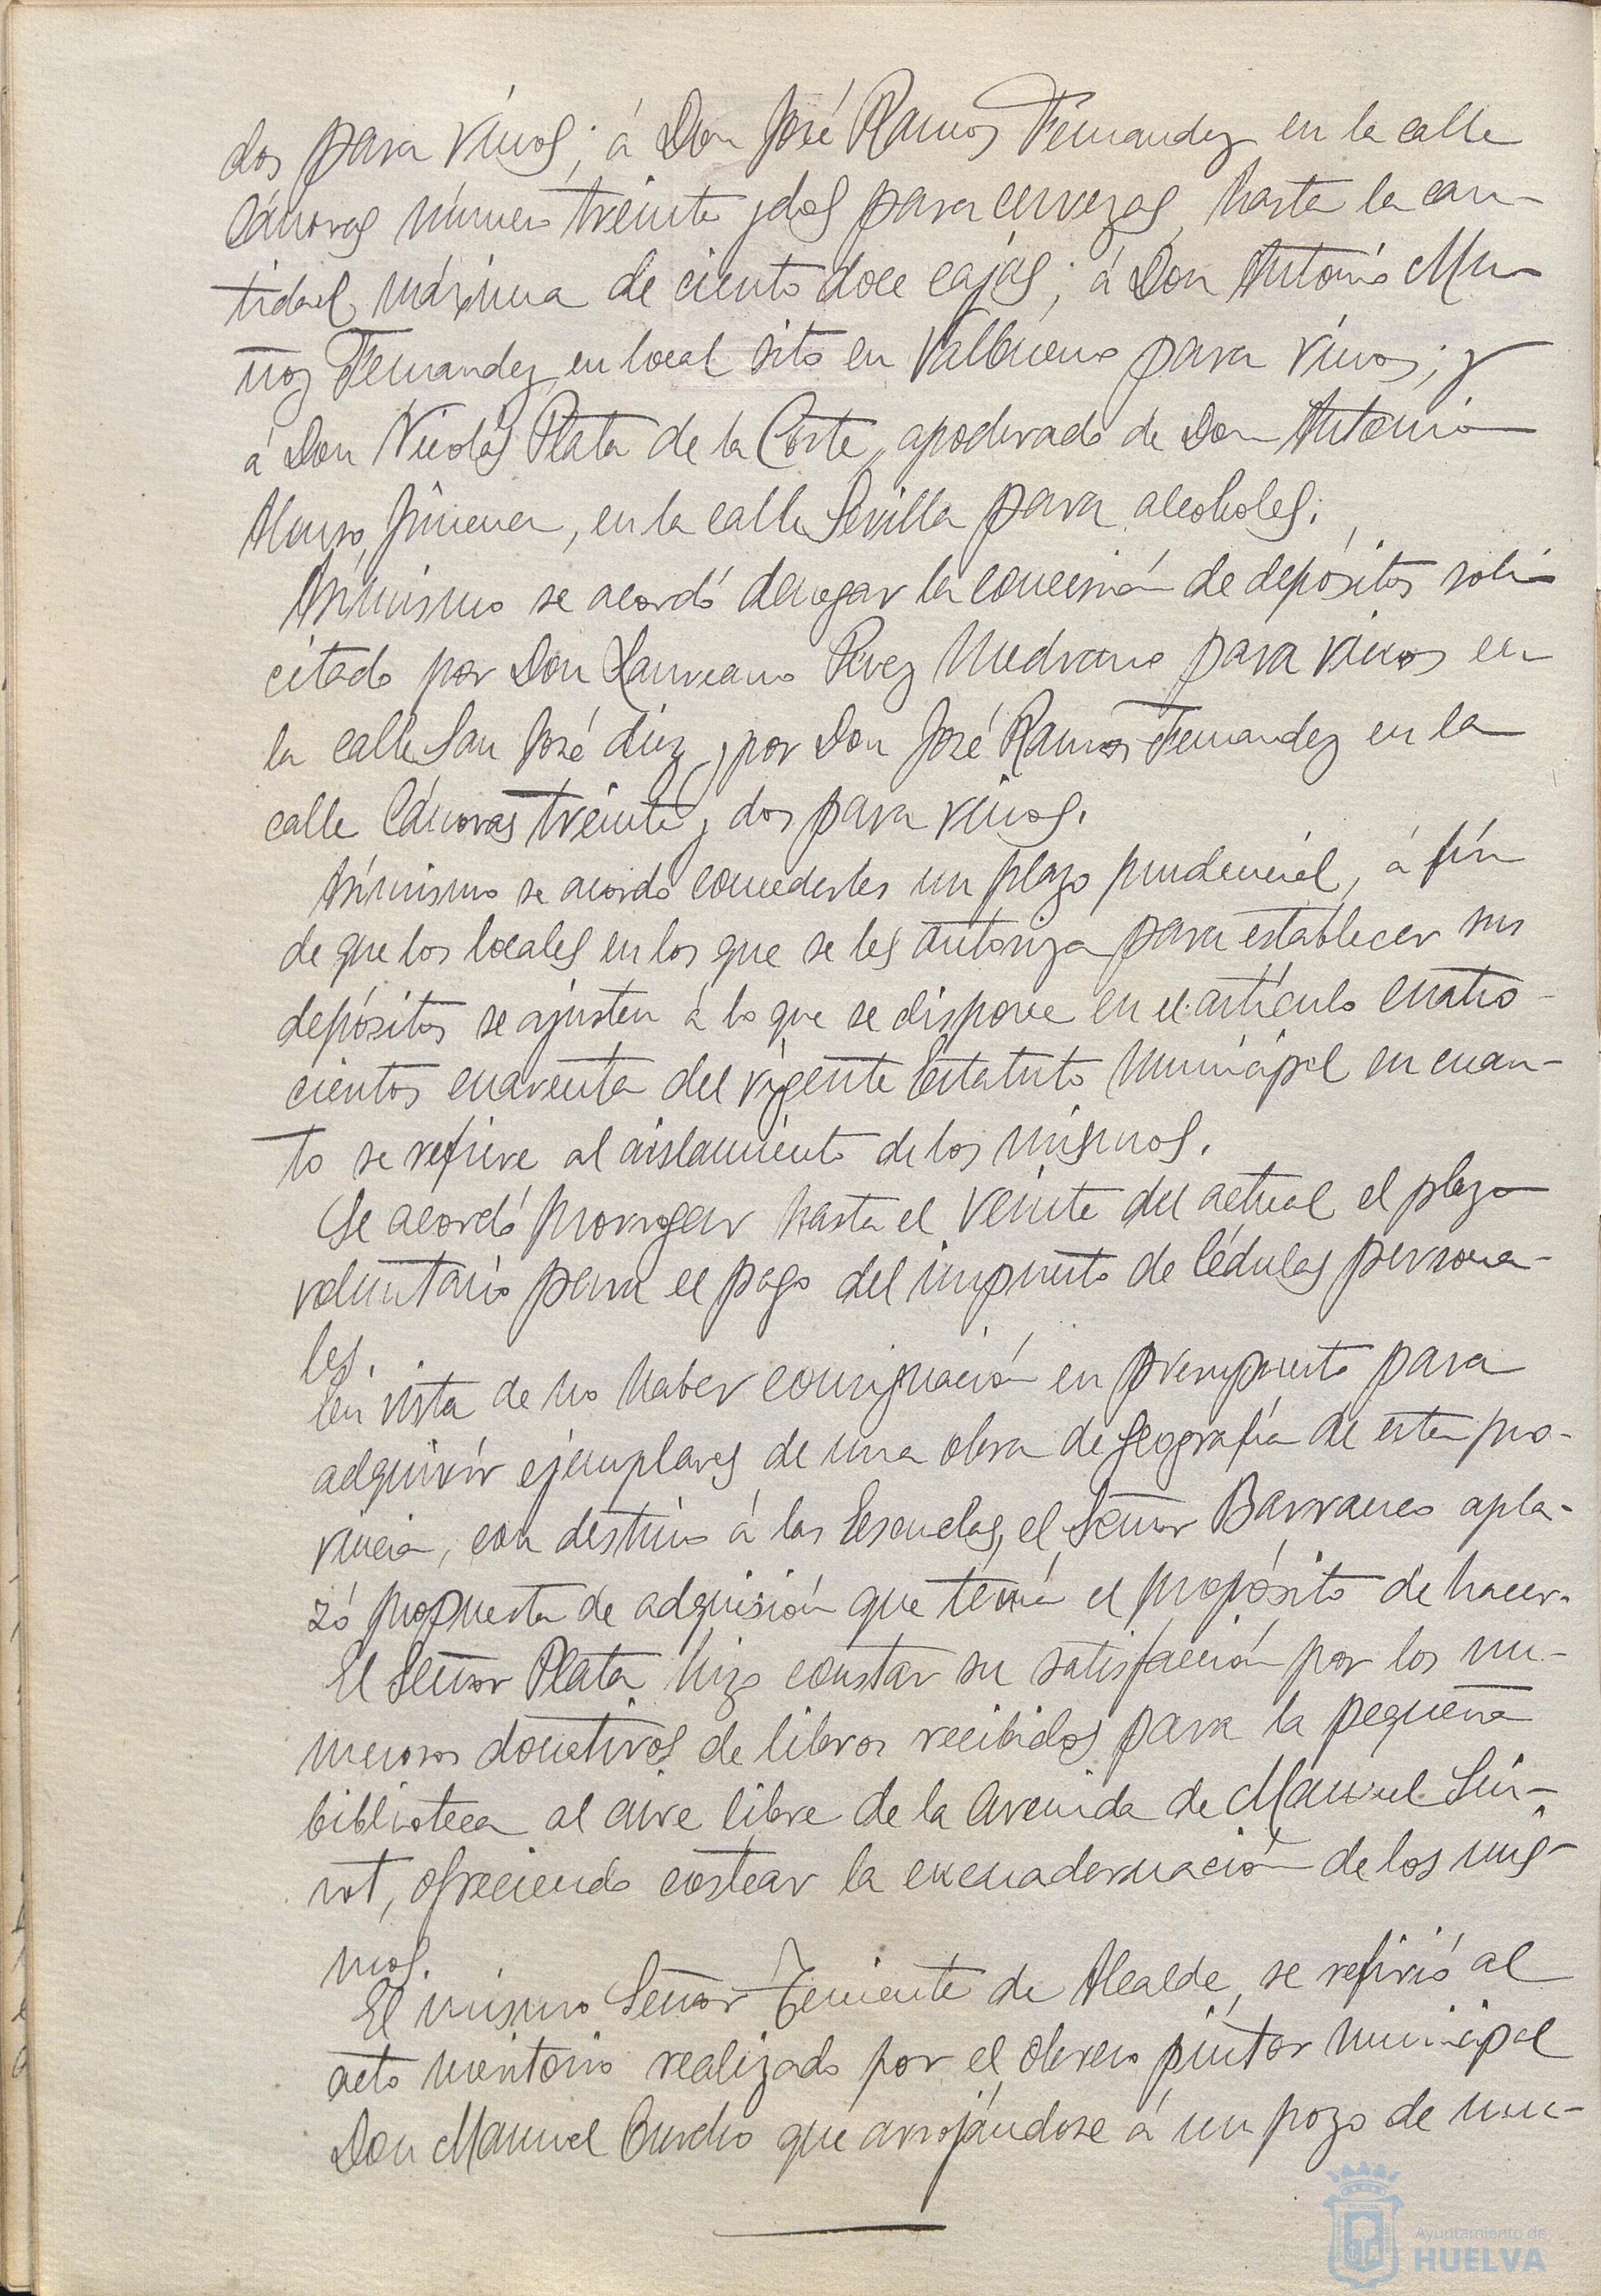 dos para vinos; á Don José Ramos Fernandez en la calle
Cánovas número treinta y dos para cervezas, hasta la can-
tidad máxima de ciento doce cajas; á Don Antonio Mu-
ñoz Fernandez, en local sito en Valbueno para vinos; y
á Don Nicolás Plata de la Corte, apoderado de Don Antonio
Alonso Jimenez, en la calle Sevilla para alcoholes.
Asímismo se acordó denegar la concesión de depósitos soli-
citado por Don Laureano Perez Medrano para vinos en
la calle San José diez y por Don José Ramos Fernandez en la
calle Cánovas treinta y dos para vinos.
Asímismo se acordó concederles un plazo prudencial, á fín
de que los locales en los que se les autoriza para establecer sus
depósitos se ajusten á lo que se dispone en el artículo cuatro-
cientos cuarenta del vigente Estatuto Municipal en cuan-
to se refiere al aislamiento de los mismos.
Se acordó prorrogar hasta el veinte del actual el plazo
voluntario para el pago del impuesto de Cédulas persona-
les.
En vista de no haber consignación en presupuesto para
adquirír ejemplares de una obra de geografía de esta pro-
vincia, con destino á las Escuelas, el Señor Barranco apla-
zó propuesta de adquisión que tenía el propósito de hacer.
El Señor Plata hizo constar su satisfacción por los nu-
merosos donativos de libros recibidos para la pequeña
biblioteca al aire libre de la Avenida de Manuel Siu-
rot, ofreciendo costear la encuadernación de los mis-
mos.
El mismo Señor Teniente de Alcalde, se refirió al
acto meritorio realizado por el obrero pintor municipal
Don Manuel que arrojándose á un pozo de nue-
Ayuntamiento de
HUELVA